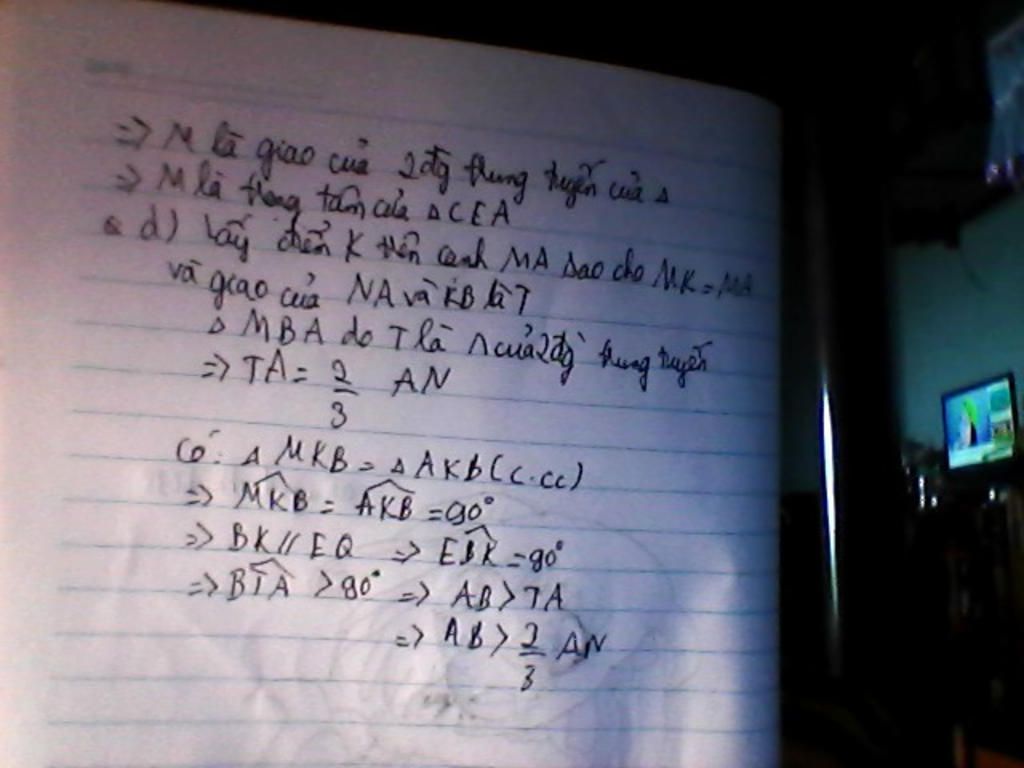 => M là giao của 2 đg trung tuyến của Δ
=> M là trọng tâm của Δ CEA
d) Lấy điểm K trên cạnh MA sao cho MK = MA
và giao của NA và KB là T
Δ MBA do T là ∩ của 2 đg trung tuyến
=> TA = 2/3 AN
Có: Δ MKB = Δ AKB (c.c.c)
=> MKB = AKB = 90°
=> BK // EQ => EBK = 90°
=> BTA > 90° => AB > TA
=> AB > 2/3 AN